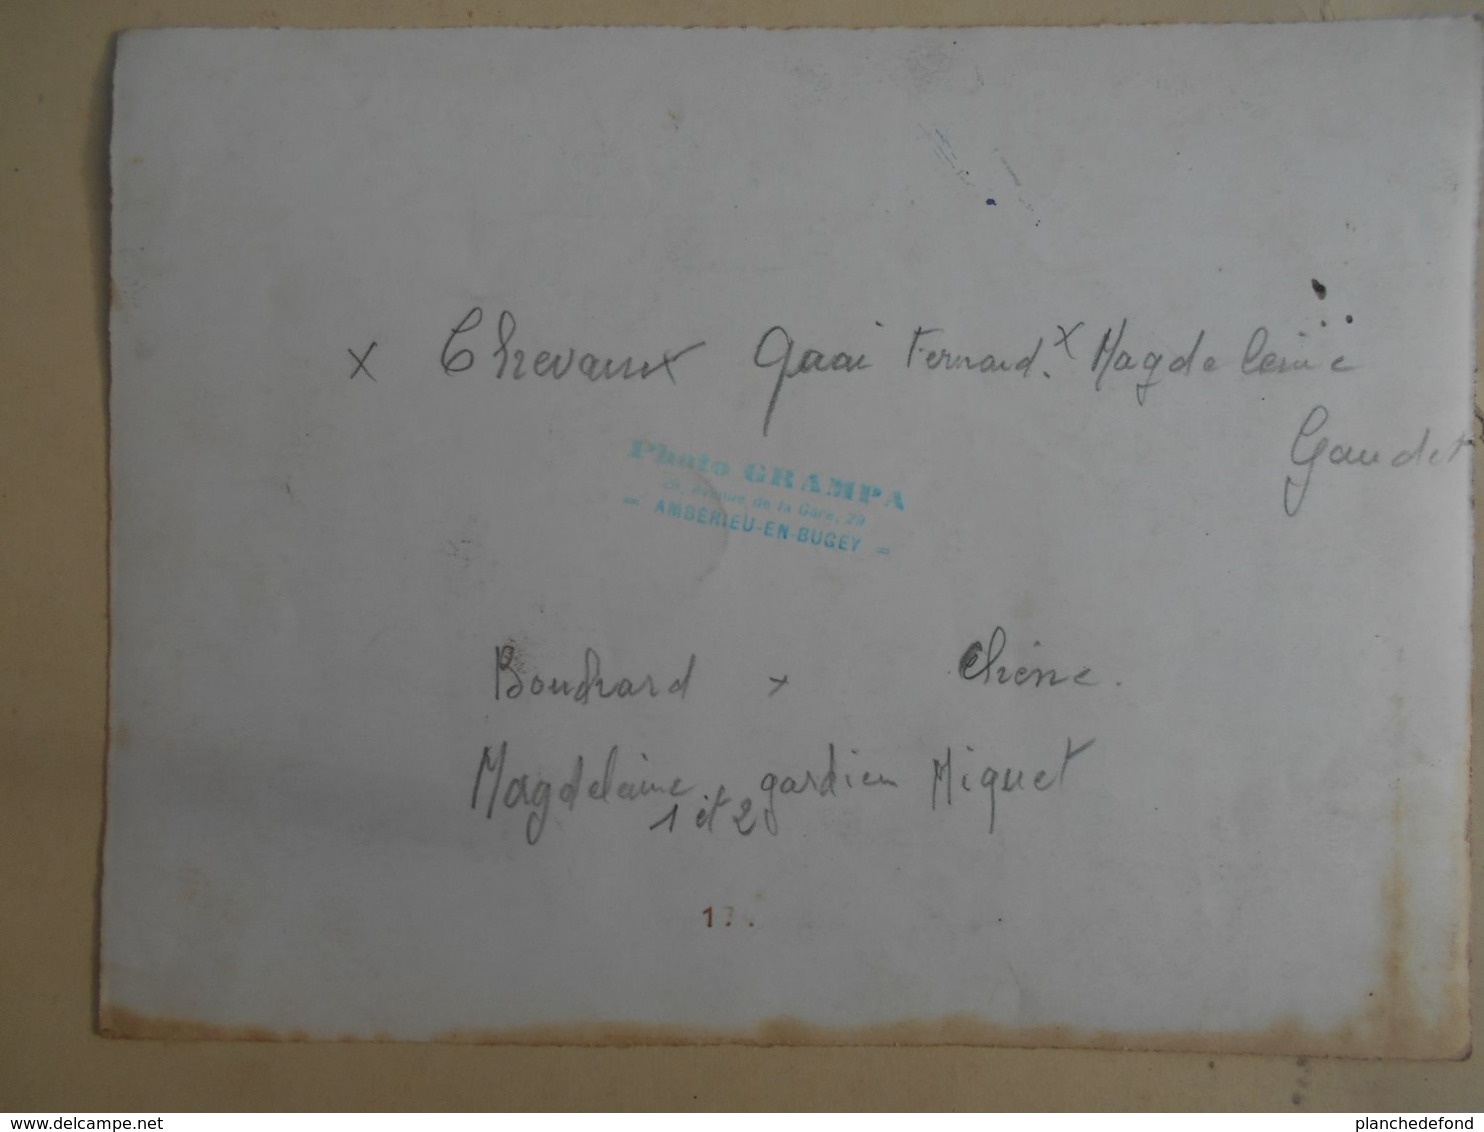 x Chevaux Quai Fernand. x Magdeleine
Gaudet
Photo GRAMPA
Avenue de la Gare, 29
= AMBÉRIEU-EN-BUGEY =
Boudrard x Chêne.
Magdeleine gardien Miquet
1 et 2
www.delcampe.net
planchedefond